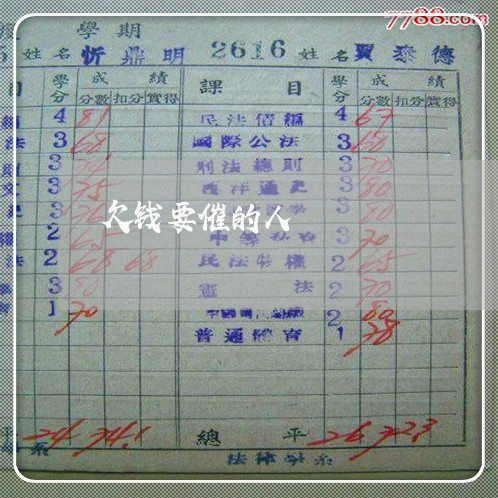 7788.com
學期
姓名 忻鼎明 2616 姓名 賈泰德
目 學分 成績 分數 扣分 實得 課目 學分 成績 分數 扣分 實得
4 81 民法債編 4 67
法 3 68 國際公法 3 60
3 刑法總則 3 70
3 75 西洋通史 3 80
3 3 80
欠钱要催的人
2 3 70
法 2 68 68 民法物權 2 65
3 80 憲法 2 70
1 70 2 80
普通體育 1 78
平 24 74.1 總平 26 72.3
系 法律學系